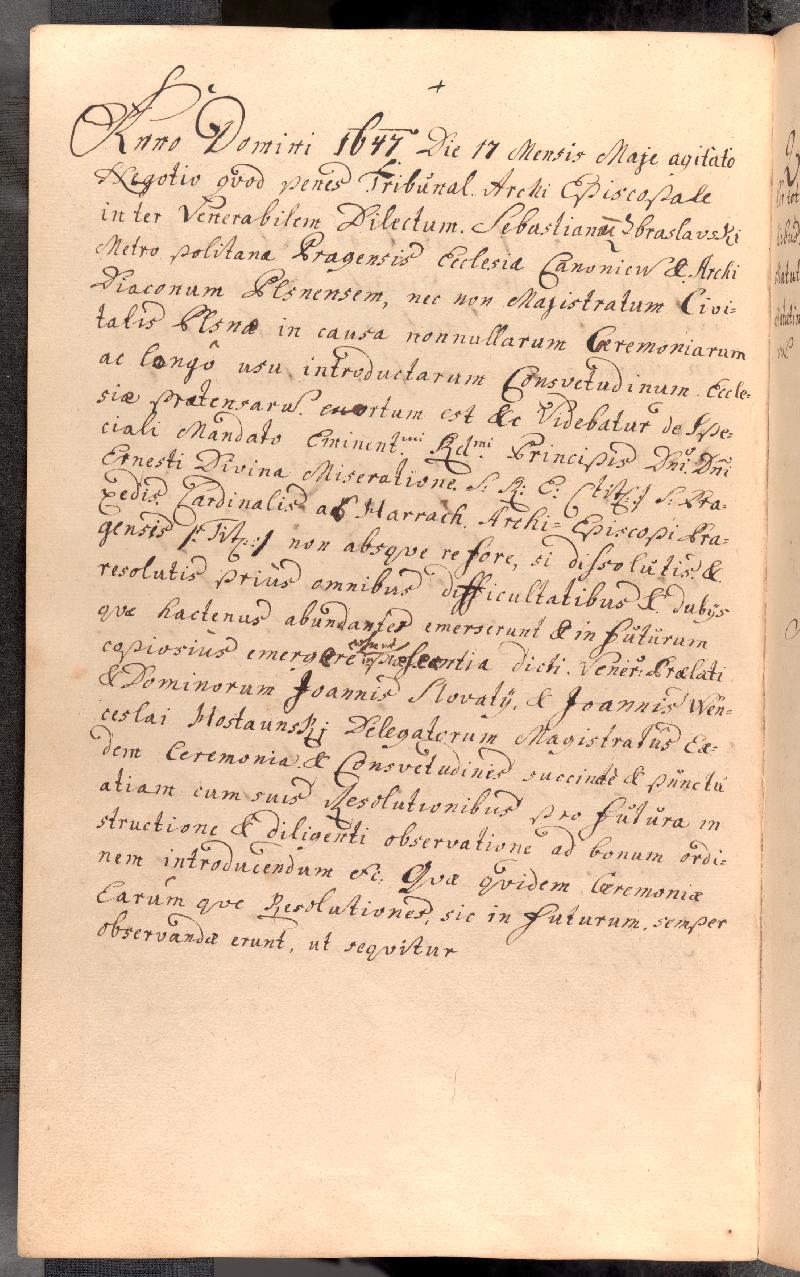 +
Anno Domini 1647 Die 17 Mensis Maje agitato
Negotio qvod penes Tribunal. Archi Episcopale
inter Venerabilem Dilectum. Sebastianum Zbraslavski
Metropolitanæ Pragensis Ecclesiæ Canonicu & Archi
Diaconum Plsnensem, nec non Magistratum Civi=
tatis Plsnæ in causa nonnullarum Cæremoniarum
ac longô usu introductarum Consvetudinum Eccle=
siæ prætensaru. exortum est &c Videbatur de Spe=
ciali Mandato Eminent.mi Rd.mi Principis Dni Dni
Ernesti Divina Miseratione. S: R: E: (tit:/ S: Pra=
xedis Cardinalis ab Harrach. Archi=Episcopi Pra=
gensis /:Tit:/ non absqve re fore, si dissolutis &
resolutis prius omnibus difficultatibus & dubÿs
quæ hactenus abundanter emerserunt & in futurum
copiosius emergere in præsentia dicti Vener: Prælati
& Dominorum Joannis Slovatÿ, & Joannis Wen=
ceslai Hostaunskj Delegatorum Magistratûs Eæ=
dem Ceremoniæ & Consvetudines succintè & punctu
atiam cum suis Resolutionibus pro futura in
structione & diligenti observatione ad bonum ordi=
nem introducendum &c: Qvæ qvidem Cæremoniæ
Earum qve Resolutiones, sic in futurum, semper
observandæ erunt, ut seqvitur